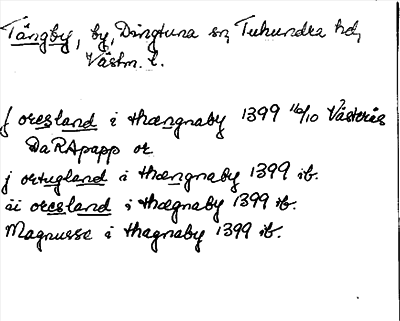 Tängby, by, Dingtuna sn, Tuhundra hd,
Västm. l.
j oresland i thængnaby 1399 16/10 Västerås
DaRApapp or
j ortugland i thængnaby 1399 ib.
ii oresland i thægnaby 1399 ib.
Magnusse i thagnaby 1399 ib.